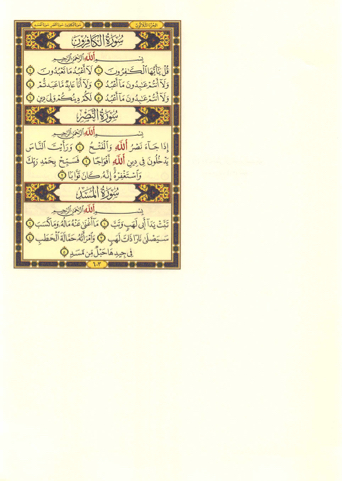 سورة الكافرون
بسم الله الرحمن الرحيم
قُلْ يَٰٓأَيُّهَا ٱلْكَٰفِرُونَ ١ لَآ أَعْبُدُ مَا تَعْبُدُونَ ٢
وَلَآ أَنتُمْ عَٰبِدُونَ مَآ أَعْبُدُ ٣ وَلَآ أَنَا۠ عَابِدٌ مَّا عَبَدتُّمْ ٤
وَلَآ أَنتُمْ عَٰبِدُونَ مَآ أَعْبُدُ ٥ لَكُمْ دِينُكُمْ وَلِىَ دِينِ ٦
سورة النصر
بسم الله الرحمن الرحيم
إِذَا جَآءَ نَصْرُ ٱللَّهِ وَٱلْفَتْحُ ١ وَرَأَيْتَ ٱلنَّاسَ
يَدْخُلُونَ فِى دِينِ ٱللَّهِ أَفْوَاجًا ٢ فَسَبِّحْ بِحَمْدِ رَبِّكَ
وَٱسْتَغْفِرْهُ إِنَّهُۥ كَانَ تَوَّابًۢا ٣
سورة المسد
بسم الله الرحمن الرحيم
تَبَّتْ يَدَآ أَبِى لَهَبٍ وَتَبَّ ١ مَآ أَغْنَىٰ عَنْهُ مَالُهُۥ وَمَا كَسَبَ ٢
سَيَصْلَىٰ نَارًا ذَاتَ لَهَبٍ ٣ وَٱمْرَأَتُهُۥ حَمَّالَةَ ٱلْحَطَبِ ٤
فِى جِيدِهَا حَبْلٌ مِّن مَّسَدٍۭ ٥